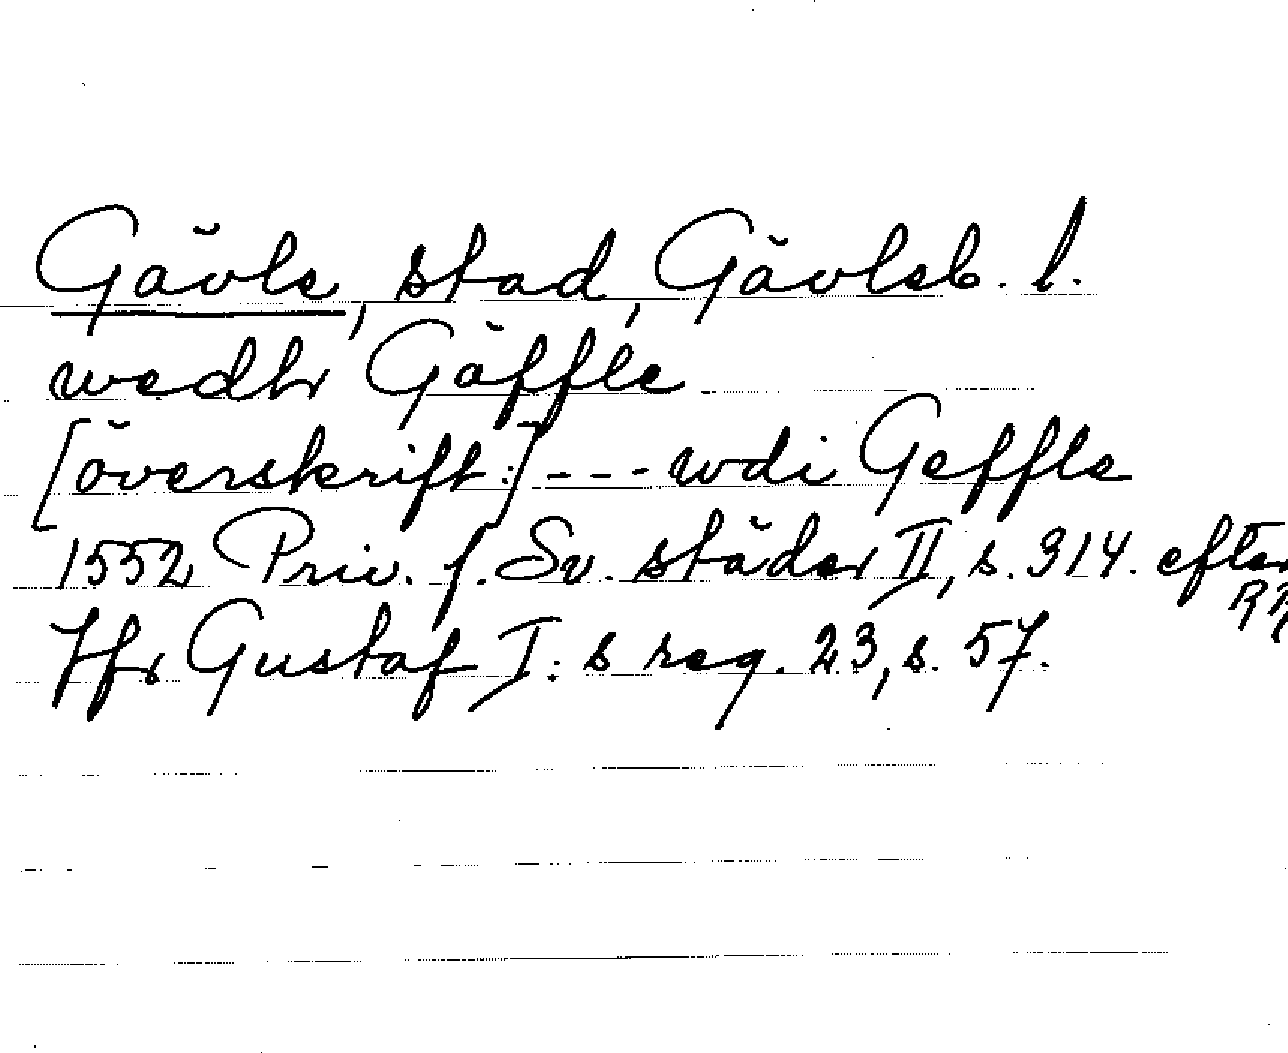 Gävle, stad, Gävleb. l.
wedhr Gäffle
[överskrift:] --- wdi Geffle
1552 Priv. f. Sv. städer II, s. 314. efter RR
Jfr Gustaf I:s reg. 23, s. 57.